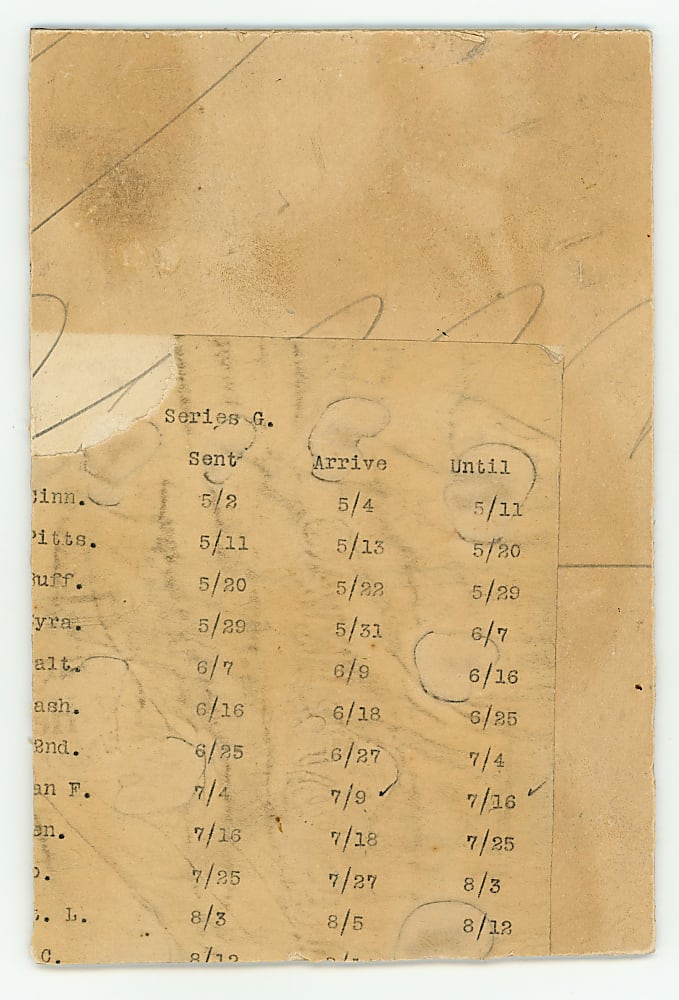 Series G.
Sent Arrive Until
Cinn. 5/2 5/4 5/11
Pitts. 5/11 5/13 5/20
Buff. 5/20 5/22 5/29
yra. 5/29 5/31 6/7
alt. 6/7 6/9 6/16
ash. 6/16 6/18 6/25
2nd. 6/25 6/27 7/4
an F. 7/4 7/9 ✓ 7/16 ✓
en. 7/16 7/18 7/25
. 7/25 7/27 8/3
. L. 8/3 8/5 8/12
C. 8/12